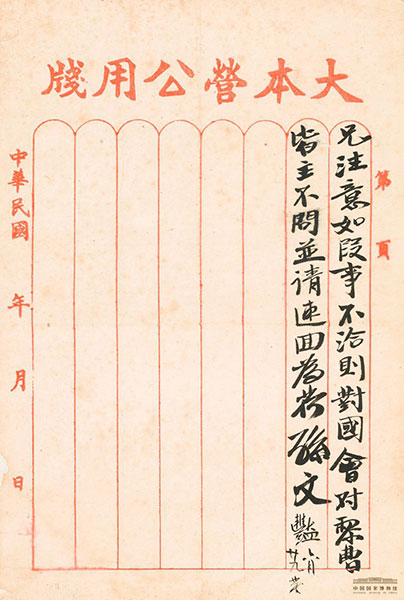 大本營公用牋
第 頁
兄注意如段事不洽則對國會对黎曹
皆主不問並请速回為荷孫文豔
中華民國 年 月 日
中国国家博物馆